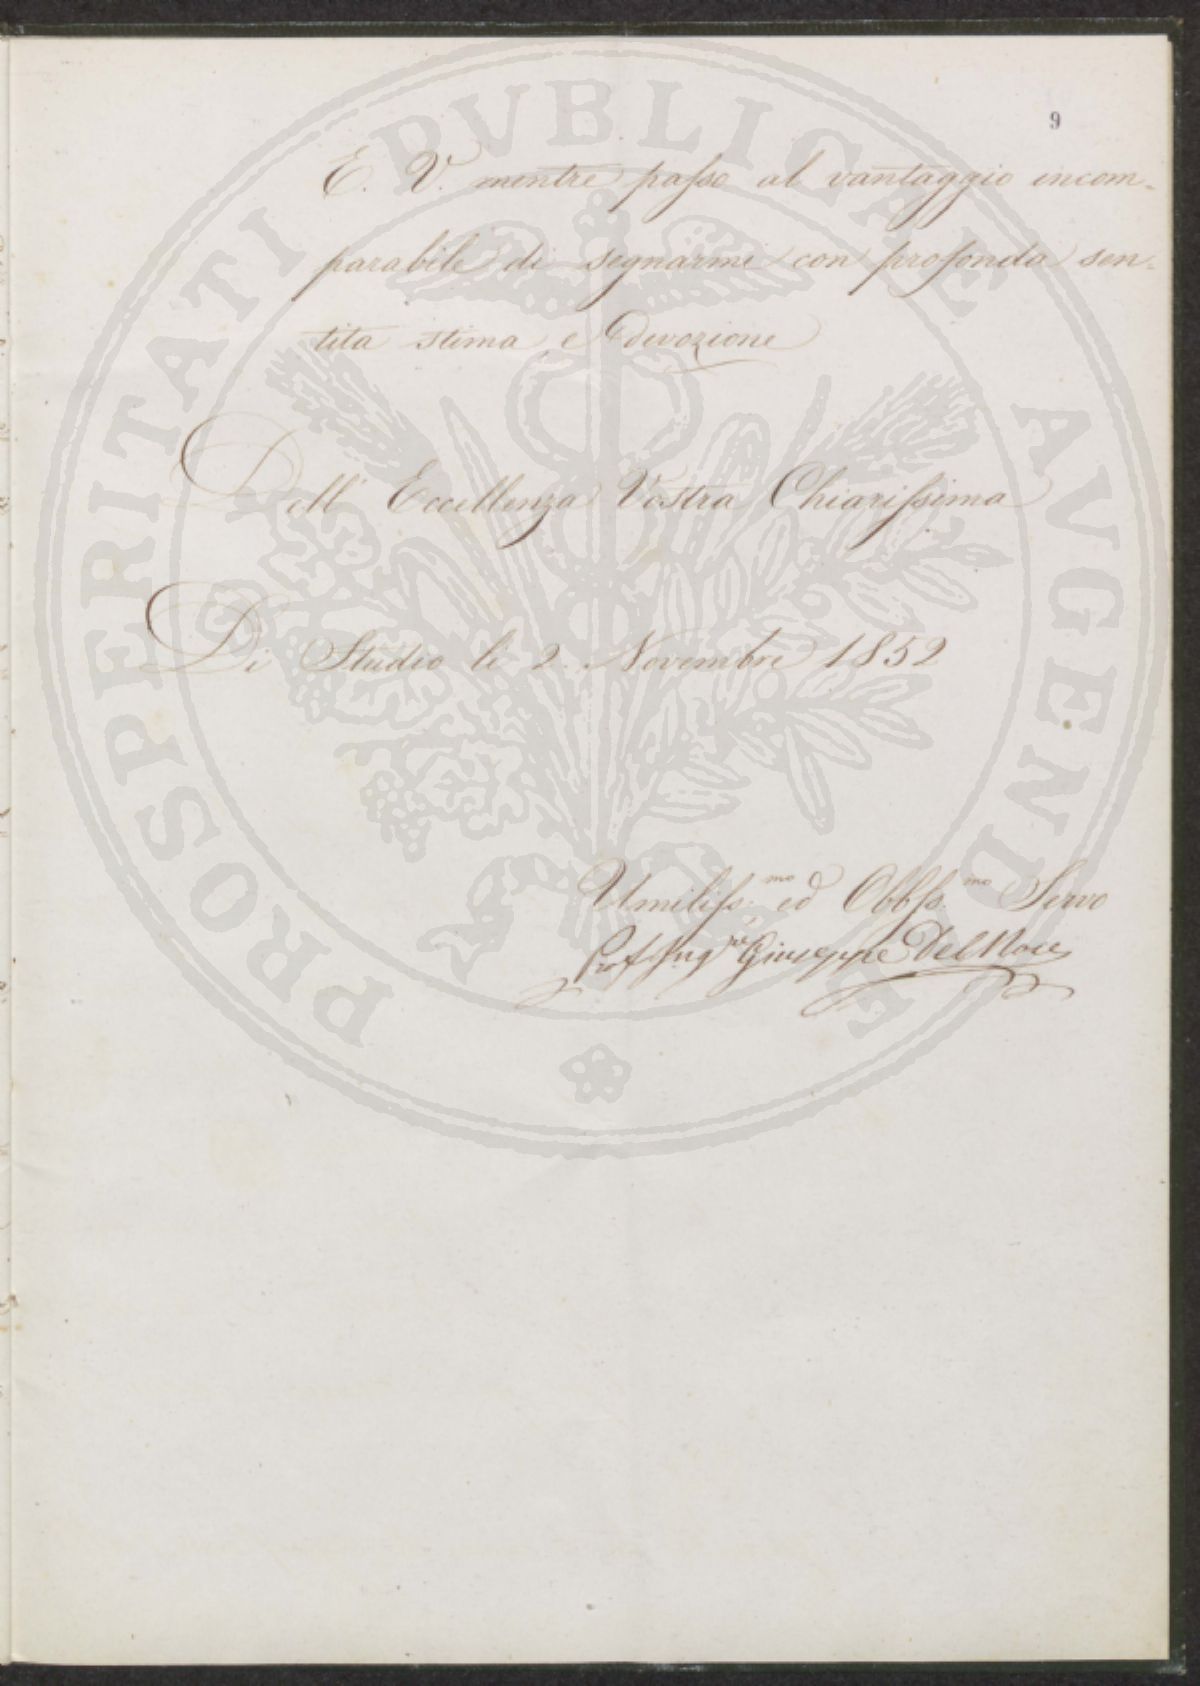 9
E. V. mentre passo al vantaggio incom-
parabile di segnarmi con profonda sen-
tita stima e devozione
Dell' Eccellenza Vostra Chiarissima
Di Studio li 2. Novembre 1852
Umiliss.mo ed Obblss.mo Servo
Prof Ingre Giuseppe Del Noce
PROSPERITATI PVBLICAE AVGENDAE